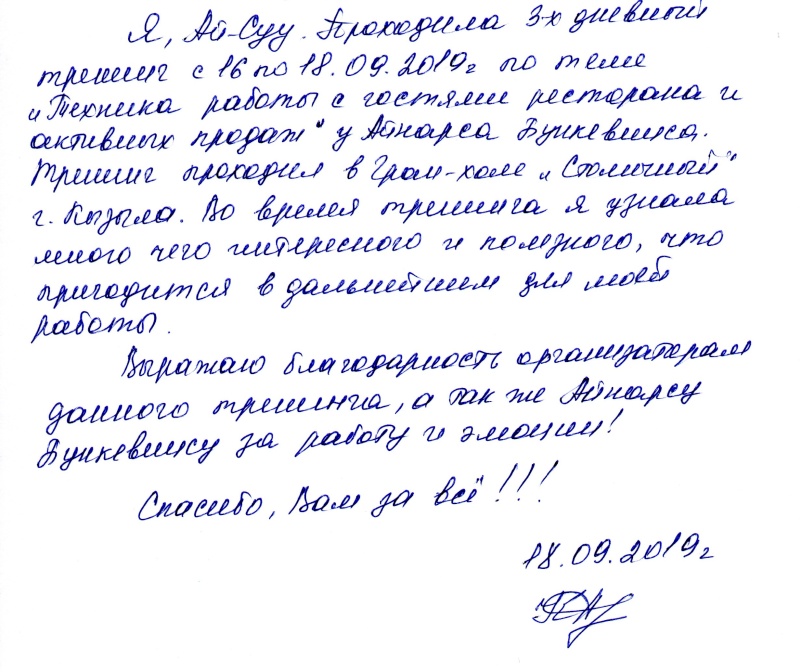 Я, Ай-Суу. Проходила 3-х дневный
тренинг с 16 по 18.09.2019г по теме
"Техника работы с гостями ресторана и
активных продаж" у Айнарса Бункевшиса.
Тренинг проходил в Гранд-холе "Столичный"
г. Кызыла. Во время тренинга я узнала
много чего интересного и полезного, что
пригодится в дальнейшем для моей
работы.
Выражаю благодарность организаторам
данного тренинга, а так же Айнарсу
Бункевшису за работу и эмоции!
Спасибо, Вам за всё!!!
18.09.2019г